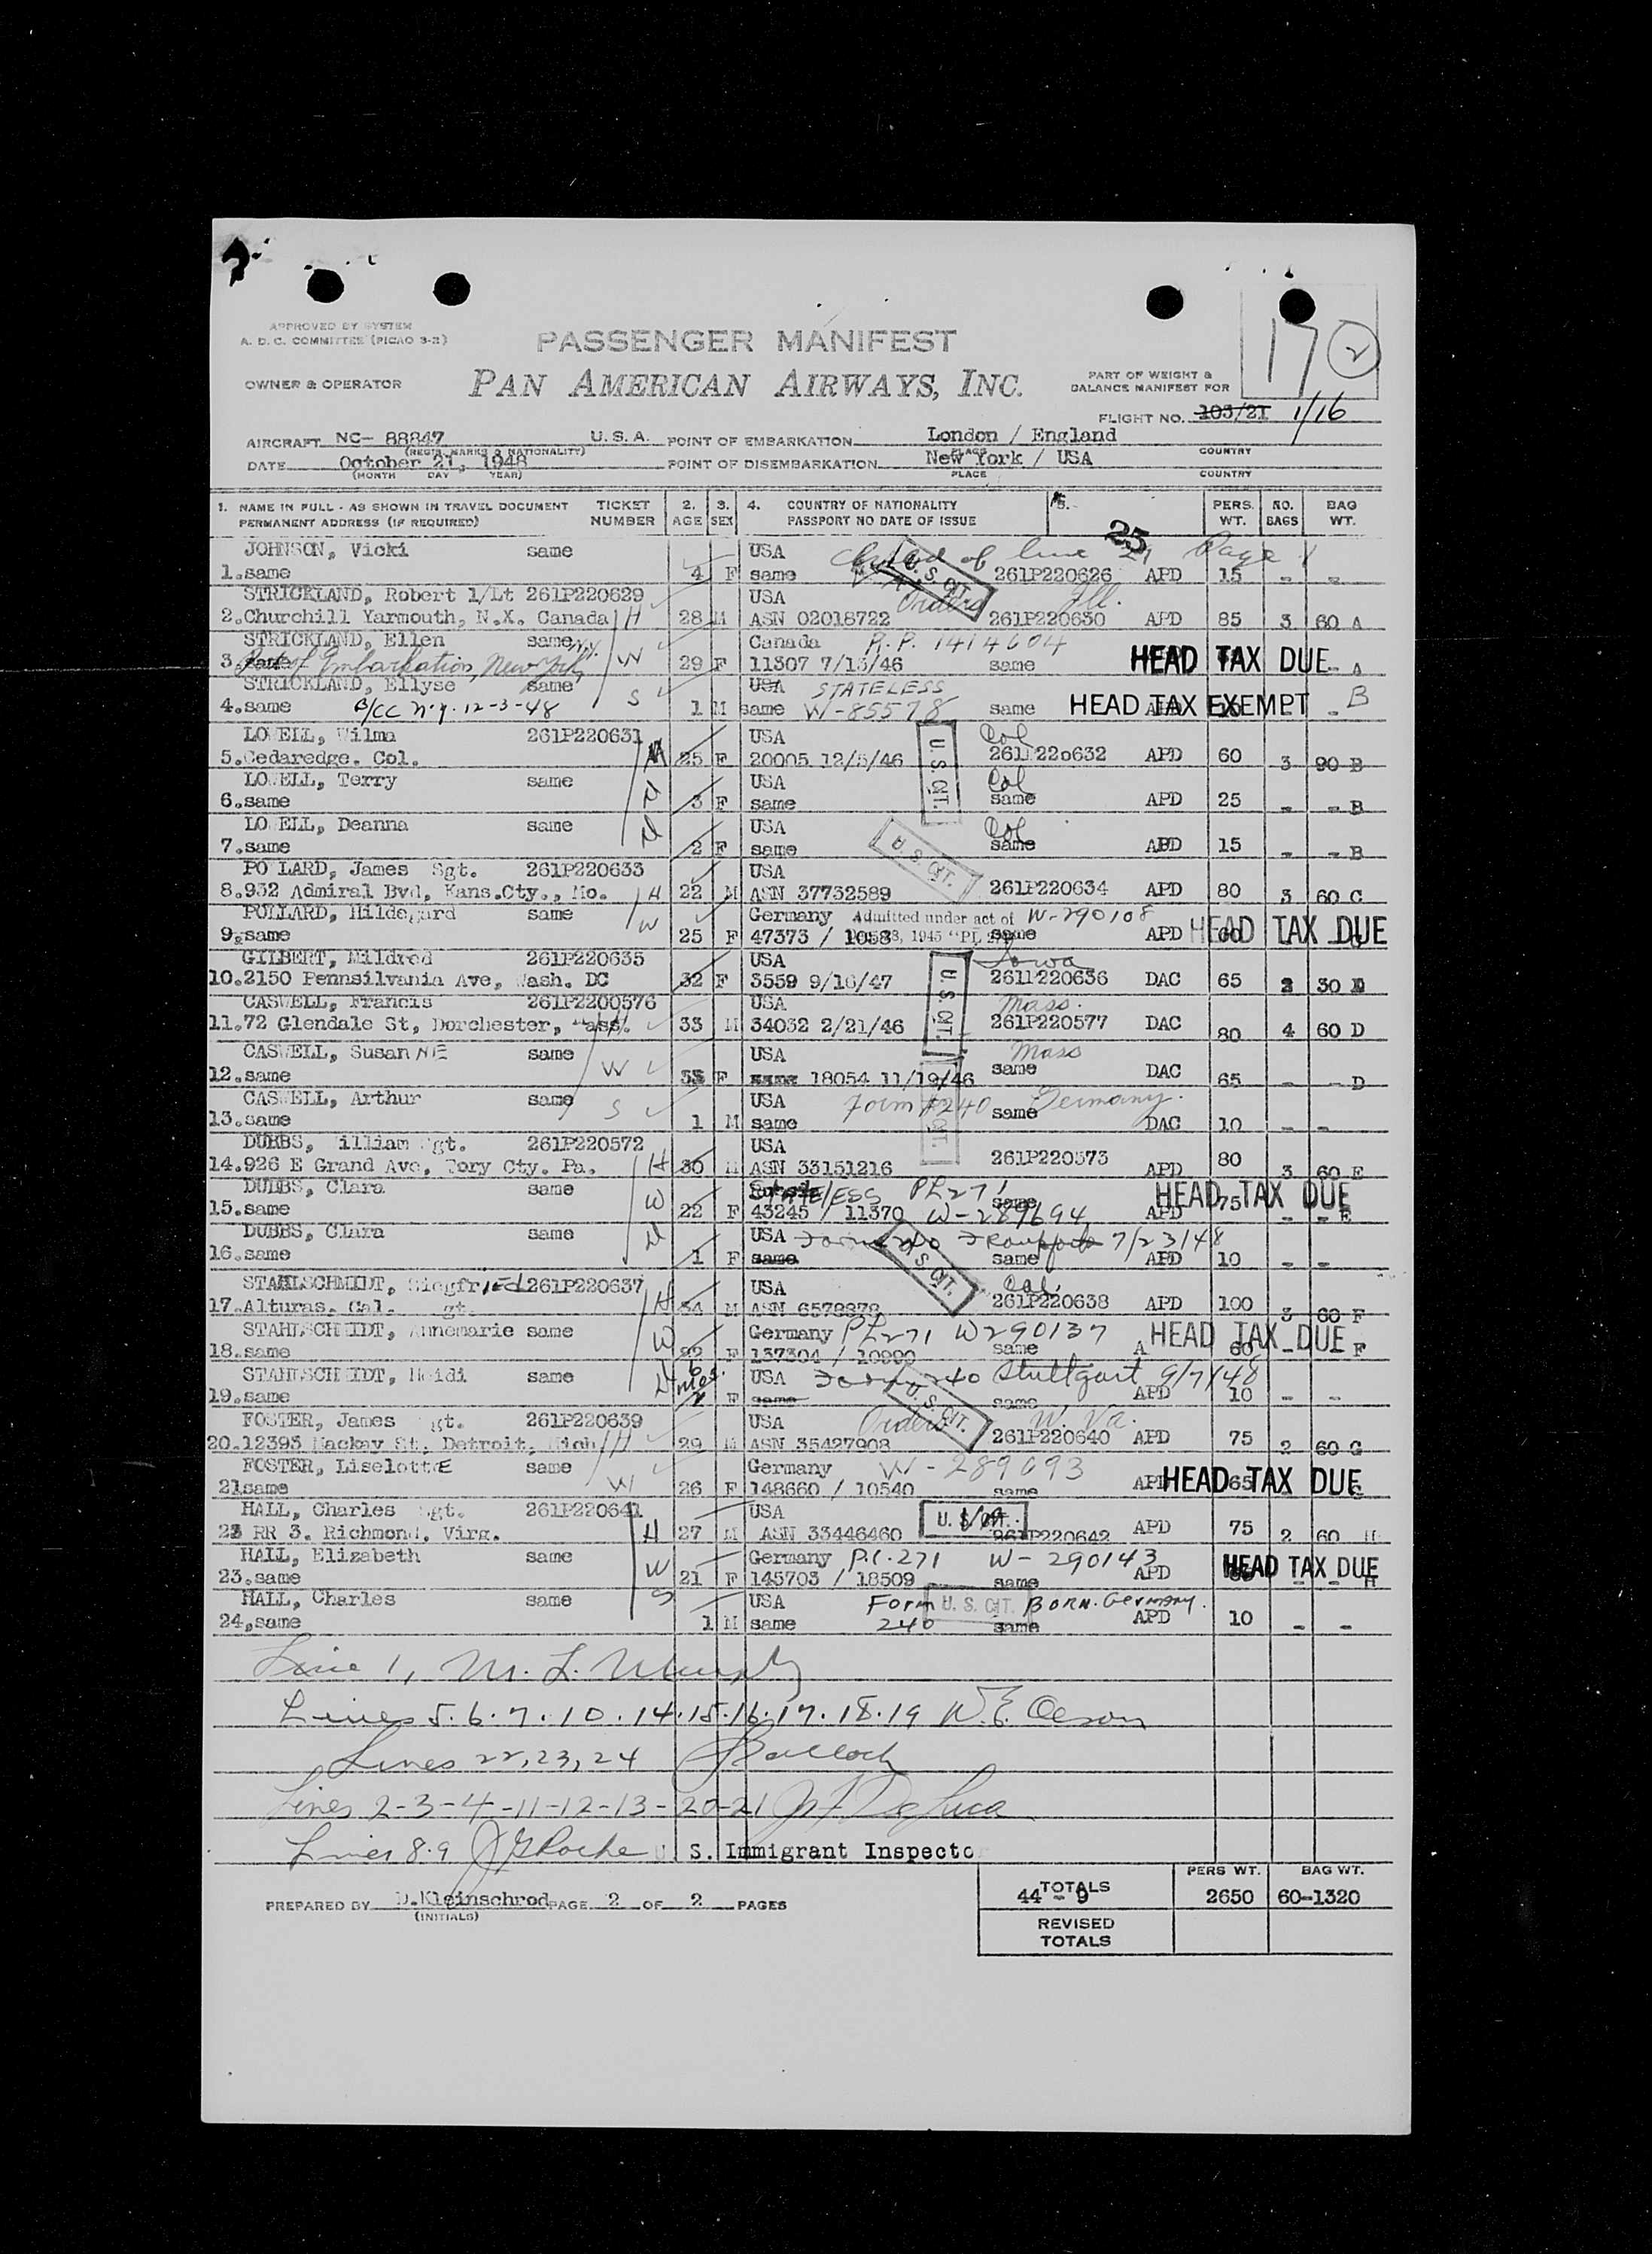 APPROVED BY SYSTEM
A. D. C. COMMITTEE (PICAO 3-2)
PASSENGER MANIFEST
17 2
OWNER & OPERATOR PAN AMERICAN AIRWAYS, INC.
PART OF WEIGHT &
BALANCE MANIFEST FOR
FLIGHT NO. 103/21 1/16
AIRCRAFT NC- 88847 U. S. A. POINT OF EMBARKATION London / England
(REGIS. MARKS & NATIONALITY) PLACE COUNTRY
DATE October 21, 1948 POINT OF DISEMBARKATION New York / USA
(MONTH DAY YEAR) PLACE COUNTRY
1. NAME IN FULL - AS SHOWN IN TRAVEL DOCUMENT TICKET 2. 3. 4. COUNTRY OF NATIONALITY 5. PERS. NO. BAG
PERMANENT ADDRESS (IF REQUIRED) NUMBER AGE SEX PASSPORT NO DATE OF ISSUE WT. BAGS WT.
25
JOHNSON, Vicki same USA child of line 21 Page 1
1.same 4 F same U. S. CIT. 261P220626 APD 15 - -
STRICKLAND, Robert 1/Lt 261P220629 USA Orders Ill.
2.Churchill Yarmouth, N.X. Canada H 28 M ASN 02018722 261P220630 APD 85 3 60 A
STRICKLAND, Ellen same N.Y. Canada P.P. 1414604
3.same Port of Embarkation, New York W 29 F 11307 7/15/46 same HEAD TAX DUE - A
STRICKLAND, Ellyse same USA STATELESS
4.same B/CC N.Y. 12-3-48 S 1 M same W-85578 same HEAD TAX EXEMPT - B
LOWELL, Wilma 261P220631 USA Col
5.Cedaredge. Col. 25 F 20005 12/5/46 U. S. CIT. 261P220632 APD 60 3 90 B
LOWELL, Terry same USA Col
6.same 3 F same same APD 25 - - B
LOWELL, Deanna same USA Col
7.same 2 F same U. S. CIT. same APD 15 - - B
POLLARD, James Sgt. 261P220633 USA
8.932 Admiral Bvd, Kans.Cty., Mo. H 22 M ASN 37732589 261P220634 APD 80 3 60 C
POLLARD, Hildegard same Germany Admitted under act of W-290108
9.same W 25 F 47373 / 1058 same APD 60 HEAD TAX DUE
GILBERT, Mildred 261P220635 USA Iowa
10.2150 Pennsilvania Ave, Wash. DC 32 F 3559 9/16/47 U. S. CIT. 261P220636 DAC 65 2 30
CASWELL, Francis 261P2200576 USA Mass.
11.72 Glendale St, Dorchester, Mass. H 33 M 34032 2/21/46 261P220577 DAC 80 4 60 D
CASWELL, Susan NE same USA Mass
12.same W 33 F same 18054 11/19/46 same DAC 65 - - D
CASWELL, Arthur same USA Form #240 Germany.
13.same S 1 M same same DAC 10 - -
DUBBS, William Sgt. 261P220572 USA
14.926 E Grand Ave, Tory Cty. Pa. H 30 M ASN 33151216 261P220573 APD 80 3 60 E
DUBBS, Clara same STATELESS PL271
15.same W 22 F 43245 / 11370 W-289694 same APD 75 HEAD TAX DUE - - E
DUBBS, Clara same USA Form 240 Frankfurt 7/23/48
16.same 1 F same U. S. CIT. same APD 10 - -
STAHLSCHMIDT, Siegfried 261P220637 USA Cal.
17.Alturas. Cal. Sgt. H 34 M ASN 6578878 261P220638 APD 100 3 60 F
STAHLSCHMIDT, Annemarie same Germany PL271 W290137
18.same W 22 F 137304 / 10990 same 60 HEAD TAX DUE F
STAHLSCHMIDT, Heidi same 6 mos. USA Form 240 Stuttgart 9/7/48
19.same F same U. S. CIT. same APD 10 - -
FOSTER, James Sgt. 261P220639 USA Orders W. Va.
20.12393 Mackay St, Detroit, Mich H 29 M ASN 35427908 261P220640 APD 75 2 60 G
FOSTER, LiselottE same Germany W-289093
21same W 26 F 148660 / 10540 same APD 65 HEAD TAX DUE
HALL, Charles Sgt. 261P220641 USA U. S. CIT.
22 RR 3. Richmond, Virg. H 27 M ASN 33446460 261P220642 APD 75 2 60 H
HALL, Elizabeth same Germany P.L.271 W-290143
23.same W 21 F 145703 / 18509 same APD HEAD TAX DUE H
HALL, Charles same USA Form U. S. CIT. BORN. Germany.
24.same S 1 M same 240 same APD 10 - -
Line 1, M. L. Murphy
Lines 5.6.7.10.14.15.16.17.18.19 W.E. Oeson
Lines 22,23,24 Bulloch
Lines 2-3-4-11-12-13-20-21 DeLuca
Lines 8.9 J G Roche U. S. Immigrant Inspector
PERS WT. BAG WT.
PREPARED BY D.Kleinschrod PAGE 2 OF 2 PAGES TOTALS 44 - 9 2650 60-1320
(INITIALS)
REVISED
TOTALS